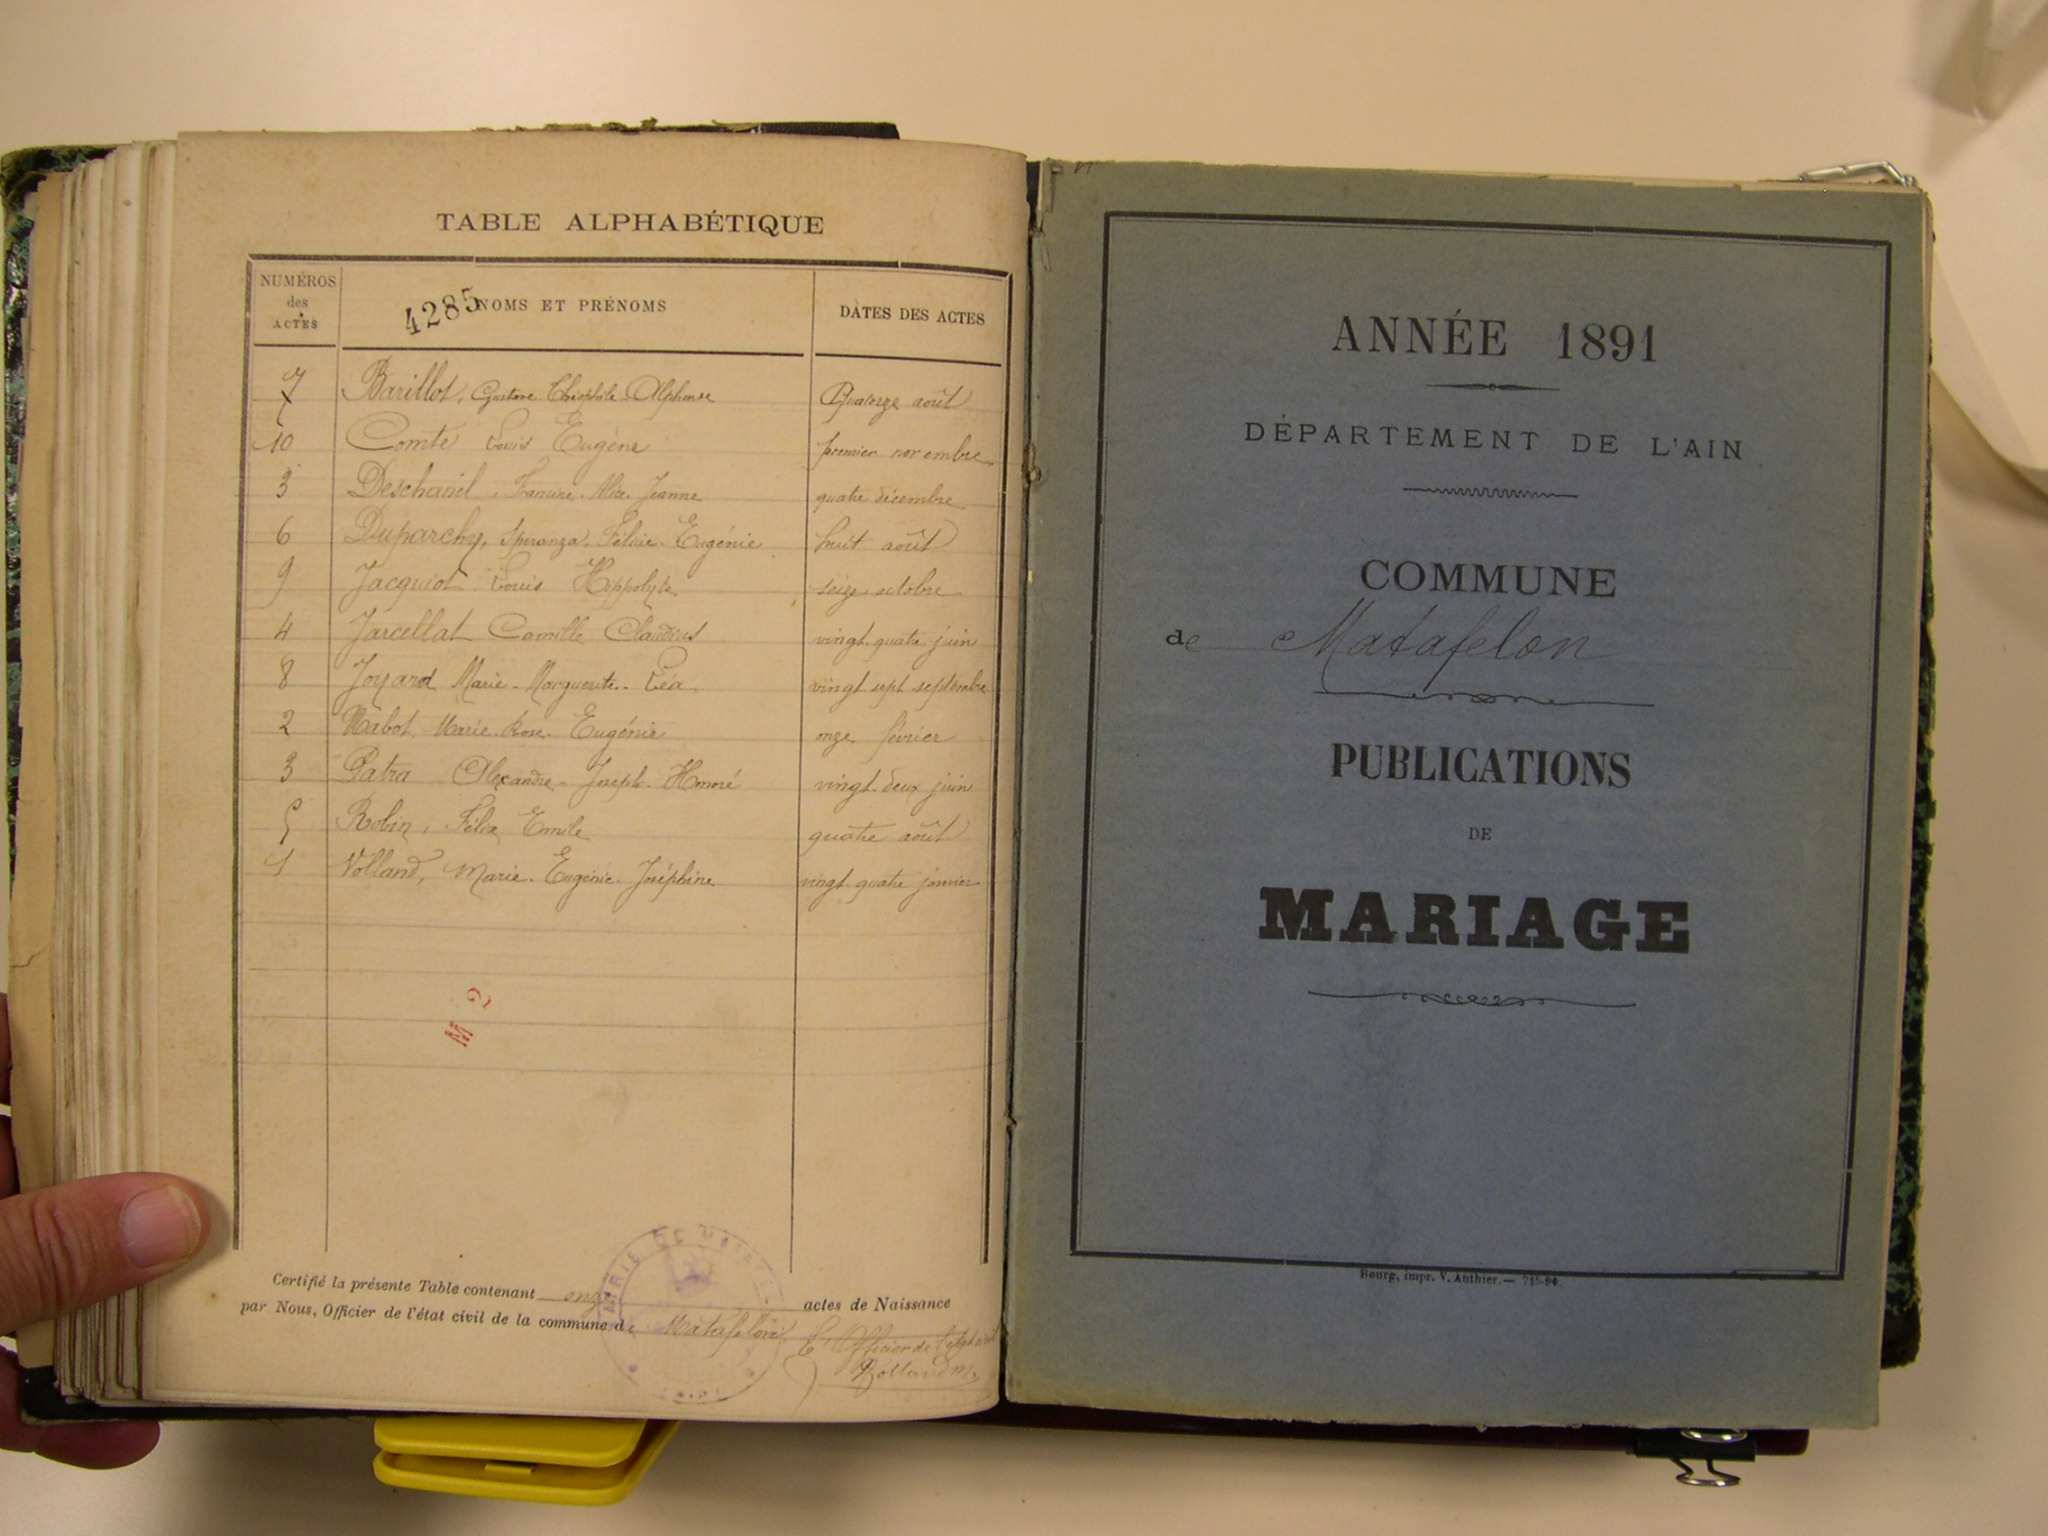 TABLE ALPHABÉTIQUE
NUMÉROS des ACTES
4285
NOMS ET PRÉNOMS
DATES DES ACTES
7 Barillot, Gustave Théophile Alphonse Quatorze août
10 Comte Louis Eugène premier novembre
3 Deschanel, Alice Jeanne quatre décembre
6 Duparchy, Speranza, Félicie Eugénie huit août
9 Jacquiot Louis Hippolyte seize octobre
4 Jarcellat Camille Claudius vingt quatre juin
8 Joyard Marie Marguerite Léa vingt sept septembre
2 Mabot Marie Rose Eugénie onze février
3 Patra Alexandre Joseph Honoré vingt deux juin
5 Robin, Félix Emile quatre août
1 Volland, Marie Eugénie Joséphine vingt quatre janvier
Certifié la présente Table contenant onze actes de Naissance
par Nous, Officier de l'état civil de la commune de Matafelon
L'Officier de l'état civil
MAIRIE DE
ANNÉE 1891
DÉPARTEMENT DE L'AIN
COMMUNE
de Matafelon
PUBLICATIONS
DE
MARIAGE
Bourg, impr. V. Authier. —